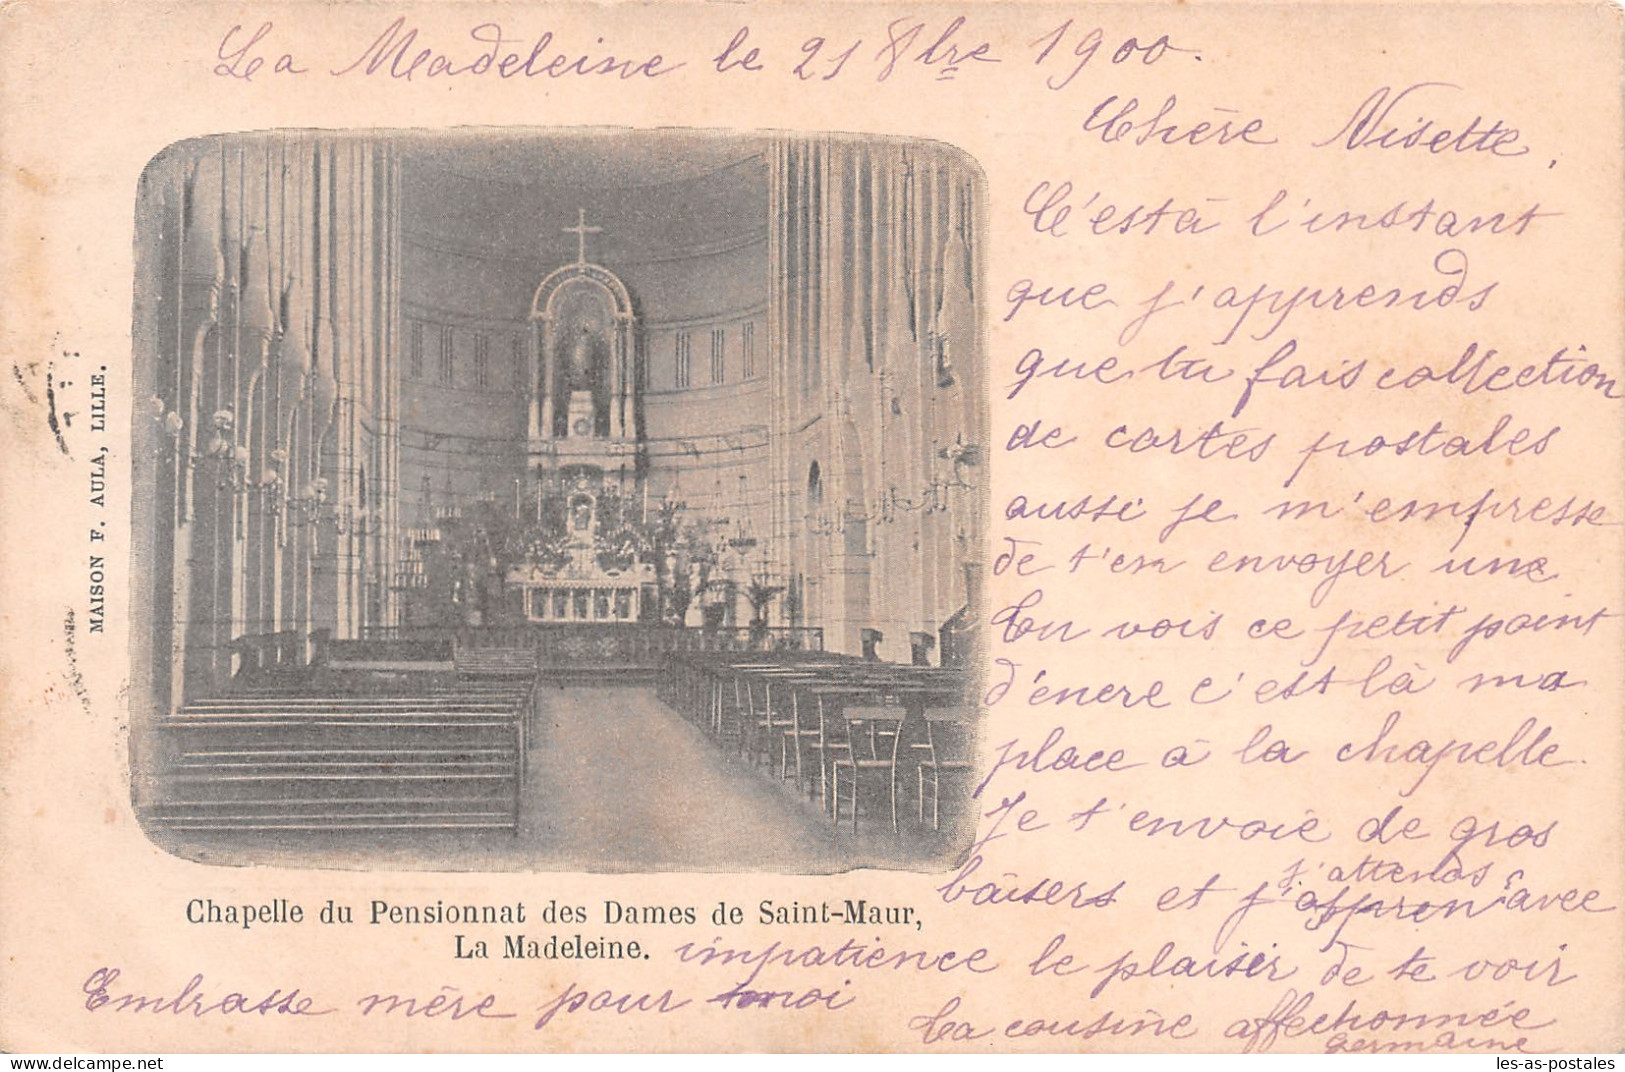 La Madeleine le 21 8bre 1900.
Chère Nisette,
C'est à l'instant
que j'apprends
que tu fais collection
de cartes postales
aussi je m'empresse
de t'en envoyer une
Tu vois ce petit point
d'encre c'est là ma
place à la chapelle.
Je t'envoie de gros
baisers et j'appren avec
j'attends
impatience le plaisir de te voir
Ta cousine affectionnée
germaine
Embrasse mère pour moi
MAISON F. AULA, LILLE.
Chapelle du Pensionnat des Dames de Saint-Maur,
La Madeleine.
les-as-postales